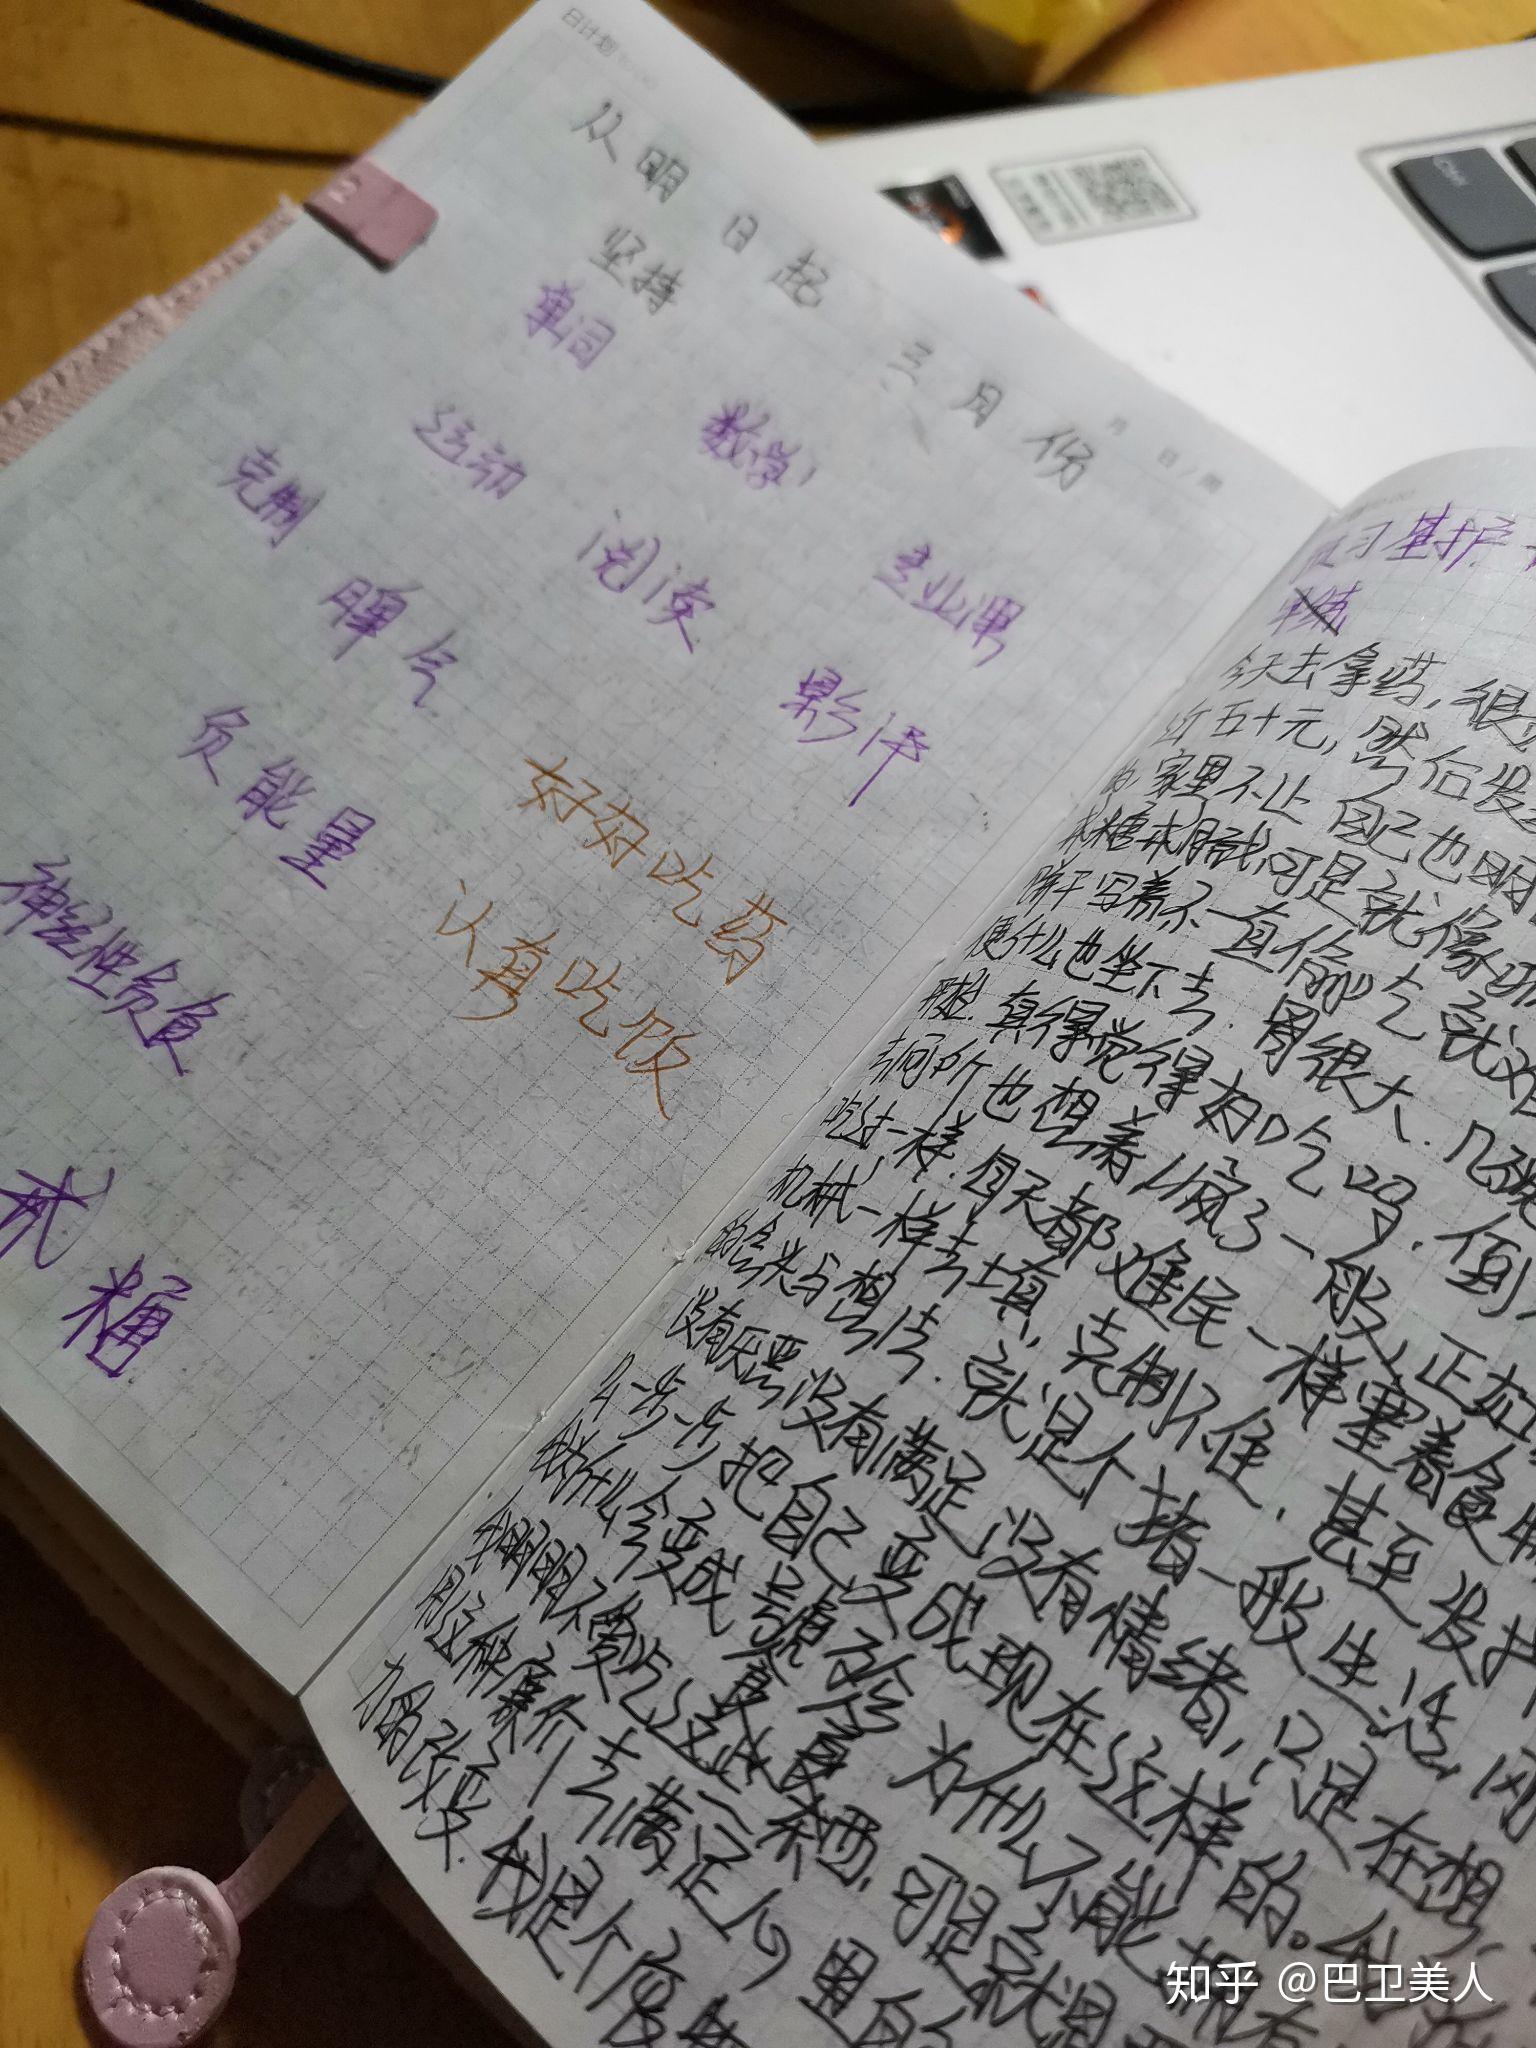 日计划
从明日起三月份
坚持
单词 数学 专业课
运动 阅读 影评
克制 脾气
负能量
神经性贪食
戒糖
好好吃药
认真吃饭
月 日/周
复习基护
今天去拿药，很
红五十元，然后发
家里不让 自己也明
戒糖 可是就像
饼干 写着不一直偷吃就难
便什么也坐下去. 胃很大. 几
真得觉得好吃吗. 但
去厕所也想着 疯了一般, 正如
吃过一样. 每天都难民一样塞着食
机械一样去填, 克制不住. 甚至发
的念头与想法. 就是个猪一般生活
没有厌恶没有满足没有情绪, 只是在想
么一步一步把自己变成现在这样的。
我为什么会变成 为什么不能拥有
我明明不爱吃这些东西, 可是就是
用这种廉价去满足心里
力的改变. 我是个废
知乎 @巴卫美人